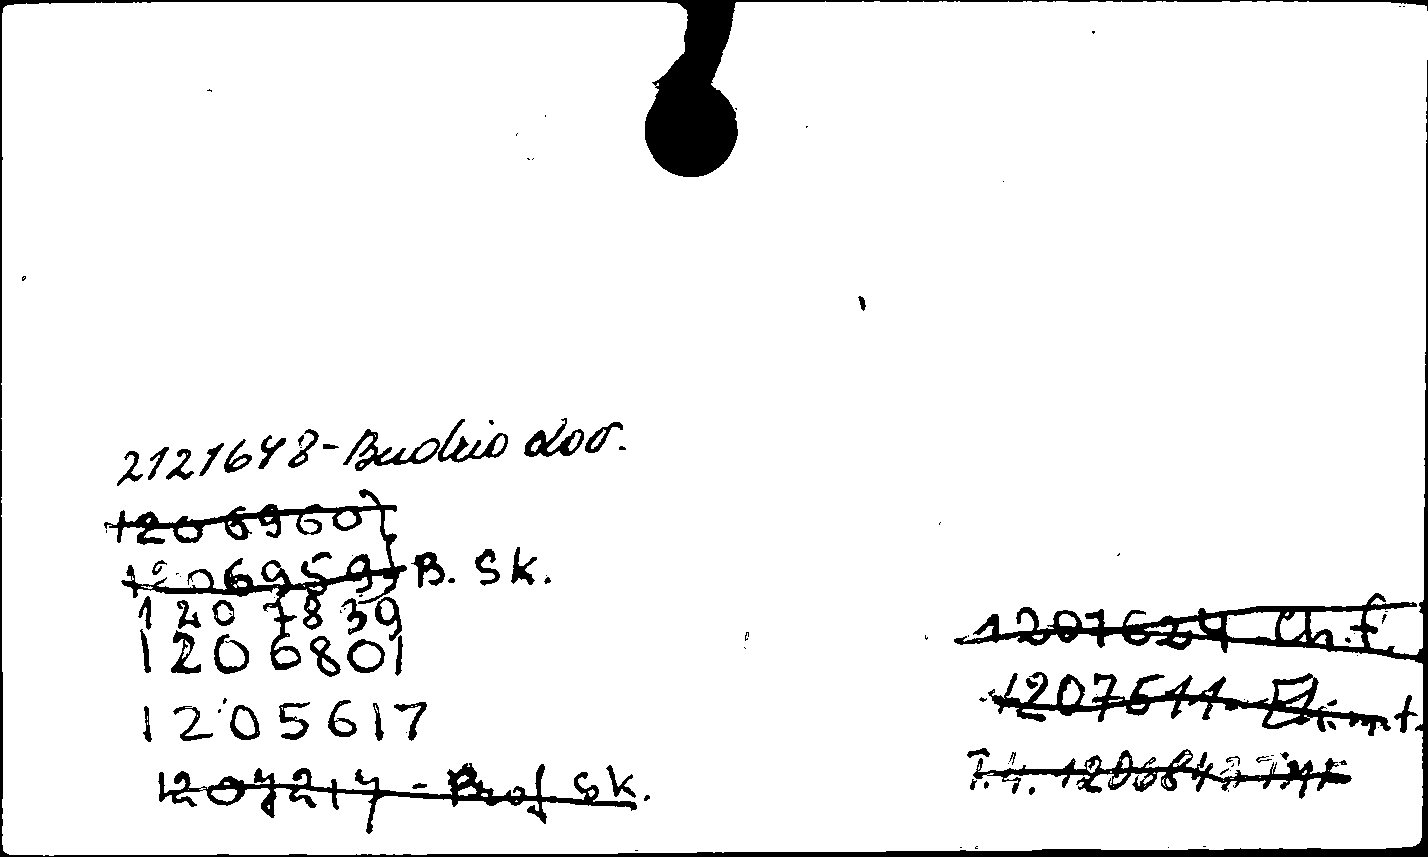 2121648-Budrio dov.
1206960
1206959 B. Sk.
1207839
1206801
1205617
1207217 - Prof Sk.
1207624 Ch.f.
1207611-
T.4. 1206843